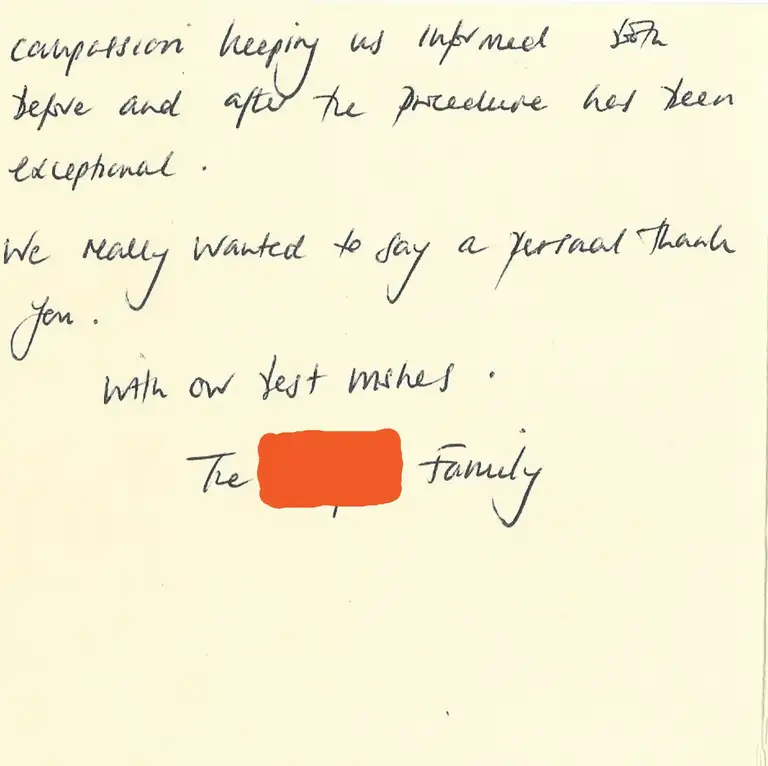 compassion keeping us informed both
before and after the procedure has been
exceptional.
We really wanted to say a personal thank
you.
With our best wishes.
The Family